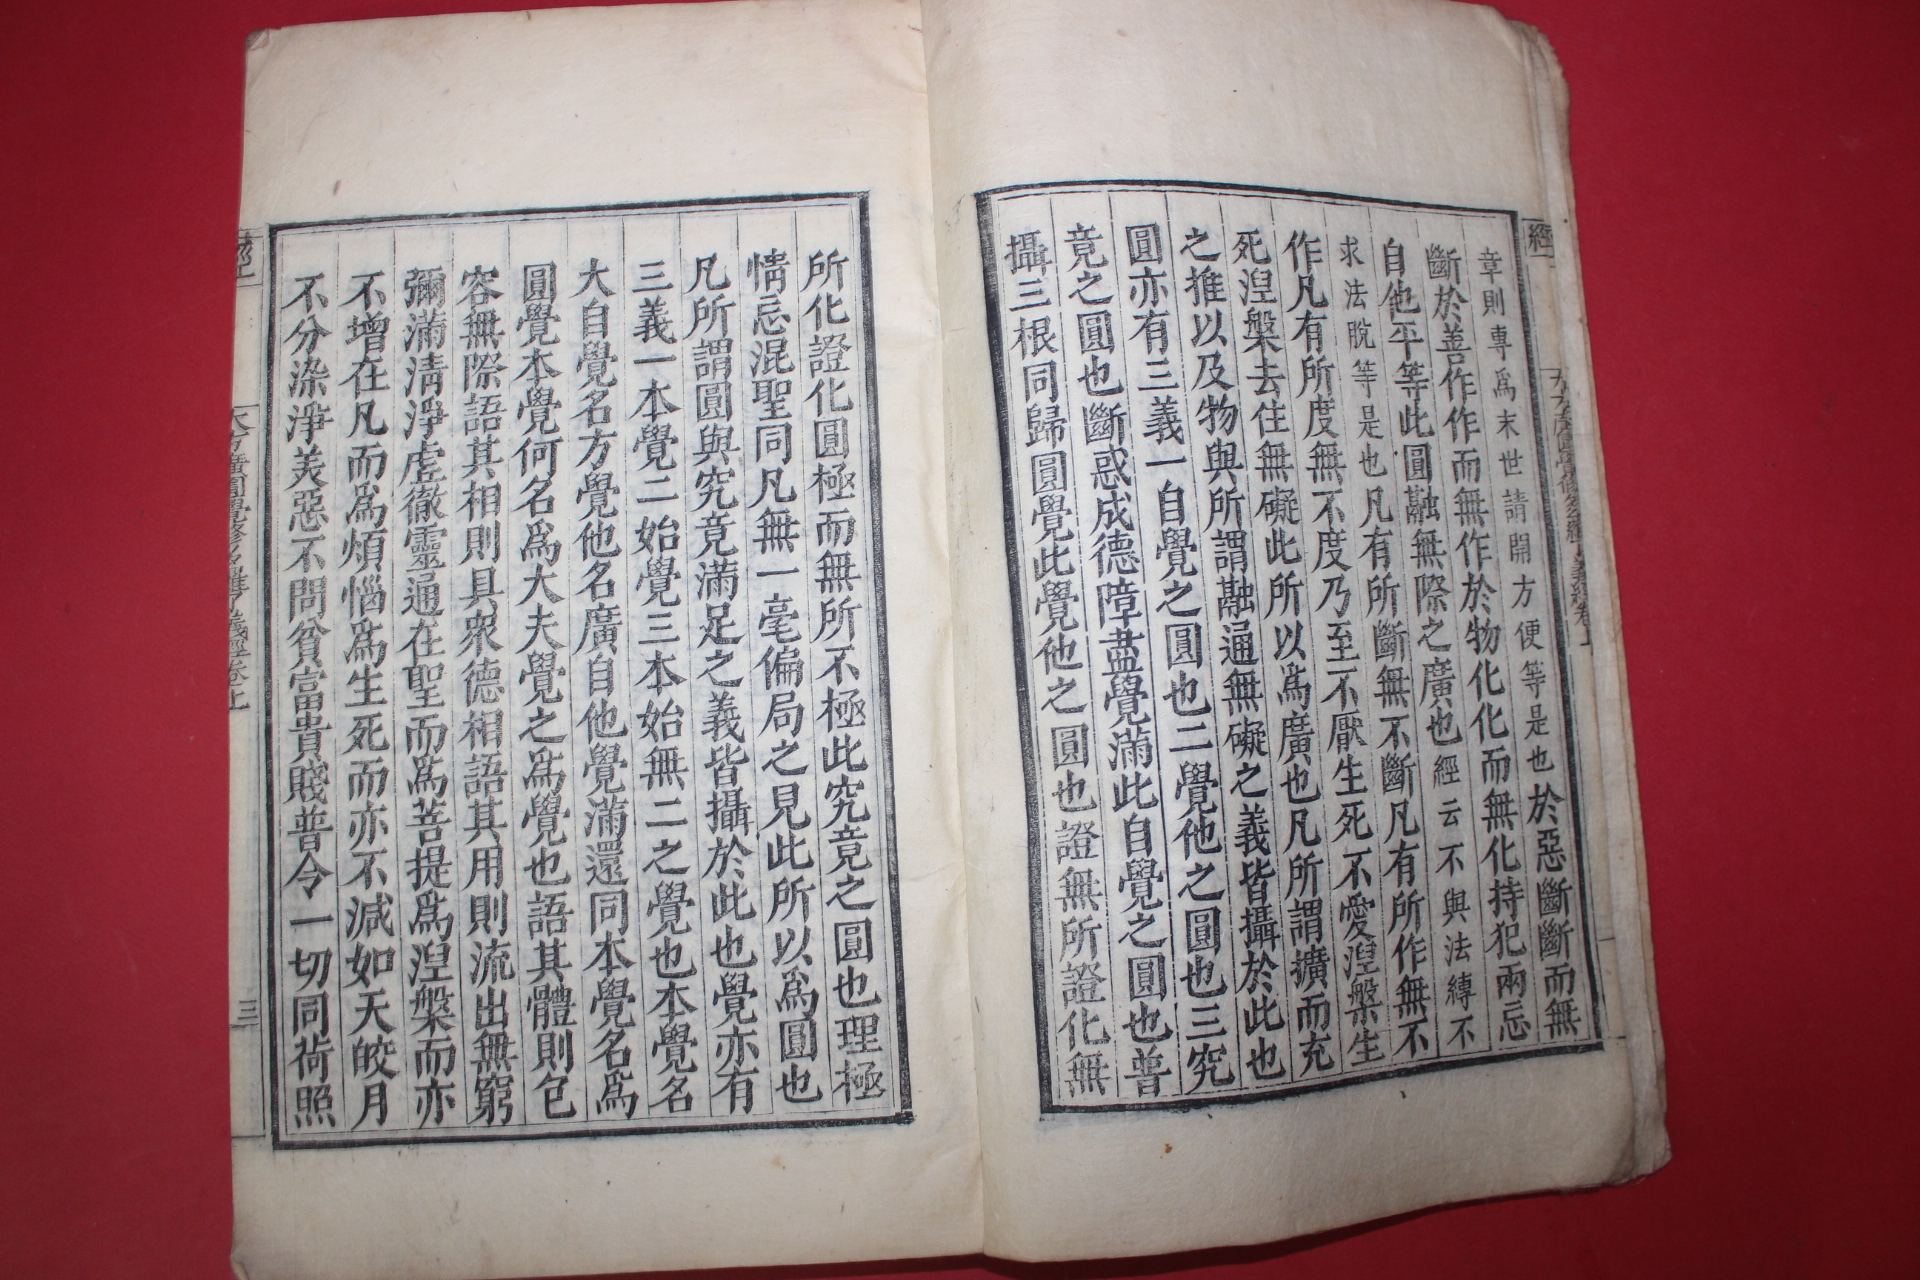 章則專為末世請開方便等是也於惡斷斷而無
斷於善作作而無作於物化化而無化持犯兩忘
自他平等此圓融無際之廣也經云不與法縛不
求法脫等是也凡有所斷無不斷凡有所作無不
作凡有所度無不度乃至不厭生死不愛涅槃生
死涅槃去住無礙此所以爲廣也凡所謂擴而充
之推以及物與所謂融通無礙之義皆攝於此也
圓亦有三義一自覺之圓也二覺他之圓也三究
竟之圓也斷惑成德障盡覺滿此自覺之圓也普
攝三根同歸圓覺此覺他之圓也證無所證化無
所化證化圓極而無所不極此究竟之圓也理極
情忘混聖同凡無一毫偏局之見此所以爲圓也
凡所謂圓與究竟滿足之義皆攝於此也覺亦有
三義一本覺二始覺三本始無二之覺也本覺名
大自覺名方覺他名廣自他覺滿還同本覺名爲
圓覺本覺何名爲大夫覺之爲覺也語其體則包
容無際語其相則具衆德相語其用則流出無窮
彌滿清淨虛徹靈通在聖而爲菩提爲涅槃而亦
不增在凡而爲煩惱爲生死而亦不減如天皎月
不分染淨美惡不問貧富貴賤普令一切同荷照
經上
大方廣圓覺修多羅了義經卷上
三